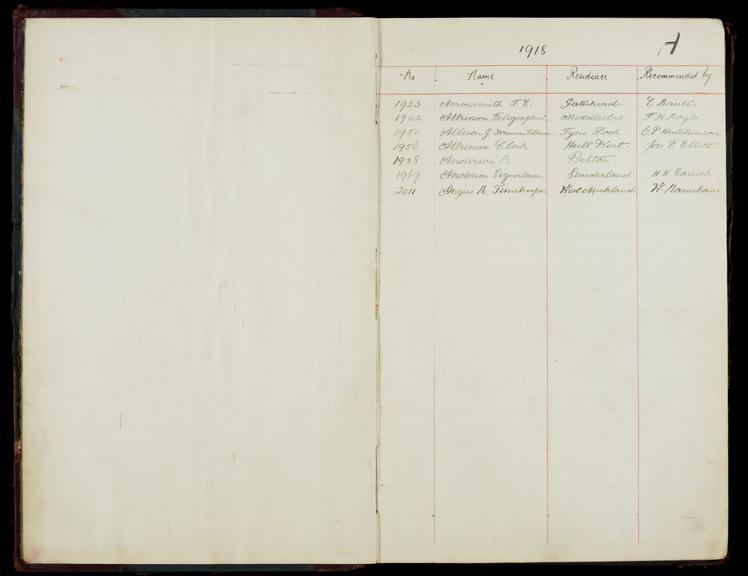 1918 A
No Name Residence Recommended by
1923 Arrowsmith T. E. Gateshead
1942 Atkinson, Telegraphist, Middlesbro T. W. Royle
1950 Allison J Foreman Tyne Dock C P Hutchinson
1956 Atkinson Clerk Hull West Jos E Elliott
1938 Anderson R Belton
1969 Anderson Signalman Sunderland H. H. Carrick
2011 Angus R. Timekeeper West Auckland W Ramshaw